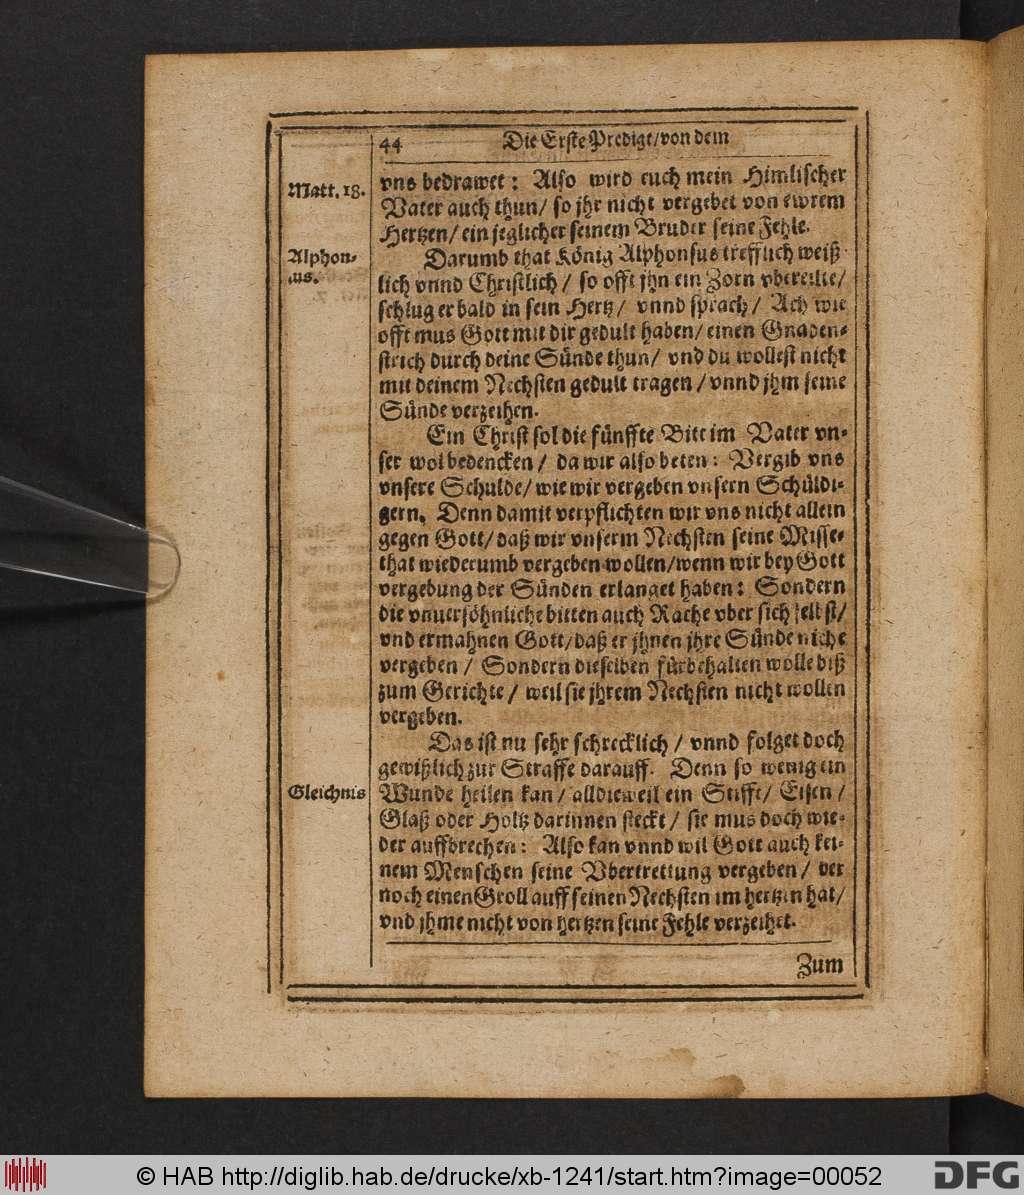 44 Die Erste Predigt/von dem
Matt. 18.
vns bedrawet: Also wird euch mein Himlischer
Vater auch thun/ so jhr nicht vergebet von ewrem
Hertzen/ ein jeglicher seinem Bruder seine Fehle.
Alphon-
us.
Darumb that König Alphonsus trefflich weiß
lich vnnd Christlich / so offt jhn ein Zorn vbereilte/
schlug er bald in sein Hertz/ vnnd sprach/ Ach wie
offt mus Gott mit dir gedult haben/ einen Gnaden-
strich durch deine Sünde thun/ vnd du wollest nicht
mit deinem Nechsten gedult tragen / vnnd jhm seine
Sünde verzeihen.
Ein Christ sol die fünffte Bitt im Vater vn-
ser wol bedencken / da wir also beten: Vergib vns
vnsere Schulde/ wie wir vergeben vnsern Schüldi-
gern. Denn damit verpflichten wir vns nicht allein
gegen Gott/ daß wir vnserm Nechsten seine Misse-
that wiederumb vergeben wollen/wenn wir bey Gott
vergebung der Sünden erlanget haben: Sondern
die vnuersöhnliche bitten auch Rache vber sich selbst/
vnd ermahnen Gott/daß er jhnen jhre Sünde nicht
vergeben / Sondern dieselben fürbehalten wolle biß
zum Gerichte / weil sie jhrem Nechsten nicht wollen
vergeben.
Das ist nu sehr schrecklich / vnnd folget doch
gewißlich zur Straffe darauff. Denn so wenig ein
Gleichnis
Wunde heilen kan / alldieweil ein Stifft/ Eisen /
Glaß oder Holtz darinnen steckt / sie mus doch wie-
der auffbrechen: Also kan vnnd wil Gott auch kei-
nem Menschen seine Vbertrettung vergeben / der
noch einen Groll auff seinen Nechsten im hertzen hat/
vnd jhme nicht von hertzen seine Fehle verzeihet.
Zum
© HAB http://diglib.hab.de/drucke/xb-1241/start.htm?image=00052
DFG